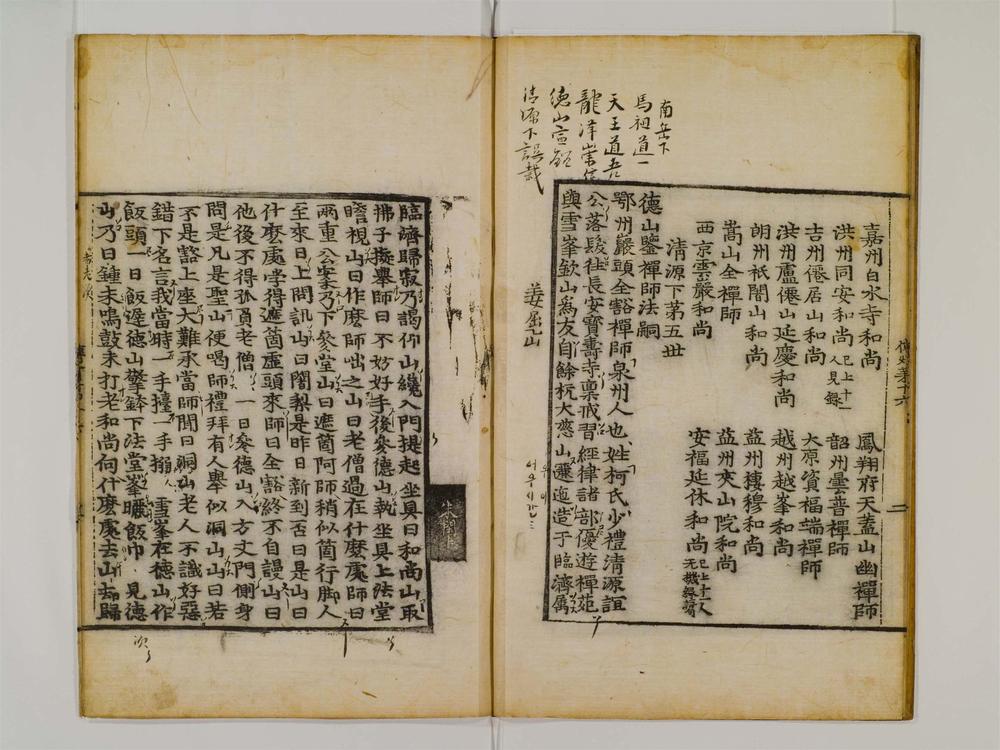 南岳下
馬祖道一
天王道吾
龍潭崇信
德山宣鑒
清源下誤裁
嘉州白水寺和尚 鳳翔府天蓋山幽禪師
洪州同安和尚已上十一人見錄 韶州曇普禪師
吉州僊居山和尚 太原資福端禪師
洪州盧僊山延慶和尚 越州越峯和尚
朗州祇闍山和尚 益州摶穆和尚
嵩山全禪師 益州夾山院和尚
西京雲嚴和尚 安福延休和尚已上十一人无機緣
清源下第五世
德山鑒禪師法嗣
鄂州巖頭全豁禪師泉州人也姓柯氏少禮清源誼
公落髮往長安寶壽寺禀戒習經律諸部優遊禪苑
與雪峯欽山爲友自餘杭大慈山邐迤造于臨濟属
臨濟歸寂乃謁仰山纔入門提起坐具曰和尚山取
拂子擬舉師曰不妨好手後叅德山執坐具上法堂
瞻視山曰作麼師咄之山曰老僧過在什麼處師曰
兩重公案乃下叅堂山曰遮箇阿師稍似箇行脚人
至來日上問訊山曰闍梨是昨日新到否曰是山曰
什麼處學得遮箇虛頭來師曰全豁終不自謾山曰
他後不得孤負老僧一日叅德山入方丈門側身
問是凡是聖山便喝師禮拜有人舉似洞山山曰若
不是豁上座大難承當師聞曰洞山老人不識好惡
錯下名言我當時一手擡一手搦雪峯在德山作
飯頭一日飯遲德山擎鉢下法堂峯曬飯巾見德
山乃曰鍾未鳴鼓未打老和尚向什麼處去山去歸